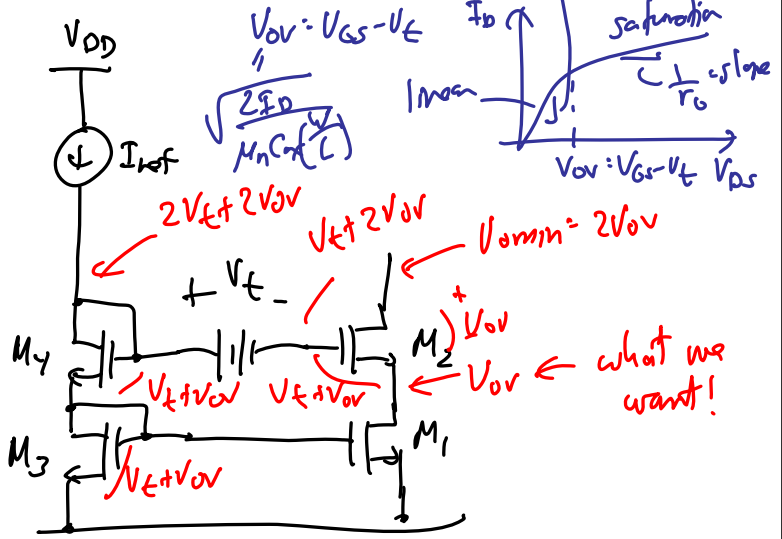 V_DD
V_OV = V_GS - V_t
"
√(2I_D / μ_n C_ox (W/L))
I_ref
I_D
saturation
linear
1/r_o = slope
V_OV = V_GS - V_t
V_DS
2V_t + 2V_OV
V_t + 2V_OV
V_omin = 2V_OV
+ V_t -
+
V_OV
-
M_4
M_2
V_t + V_OV
V_t + V_OV
V_OV
what we
want!
M_3
V_t + V_OV
M_1